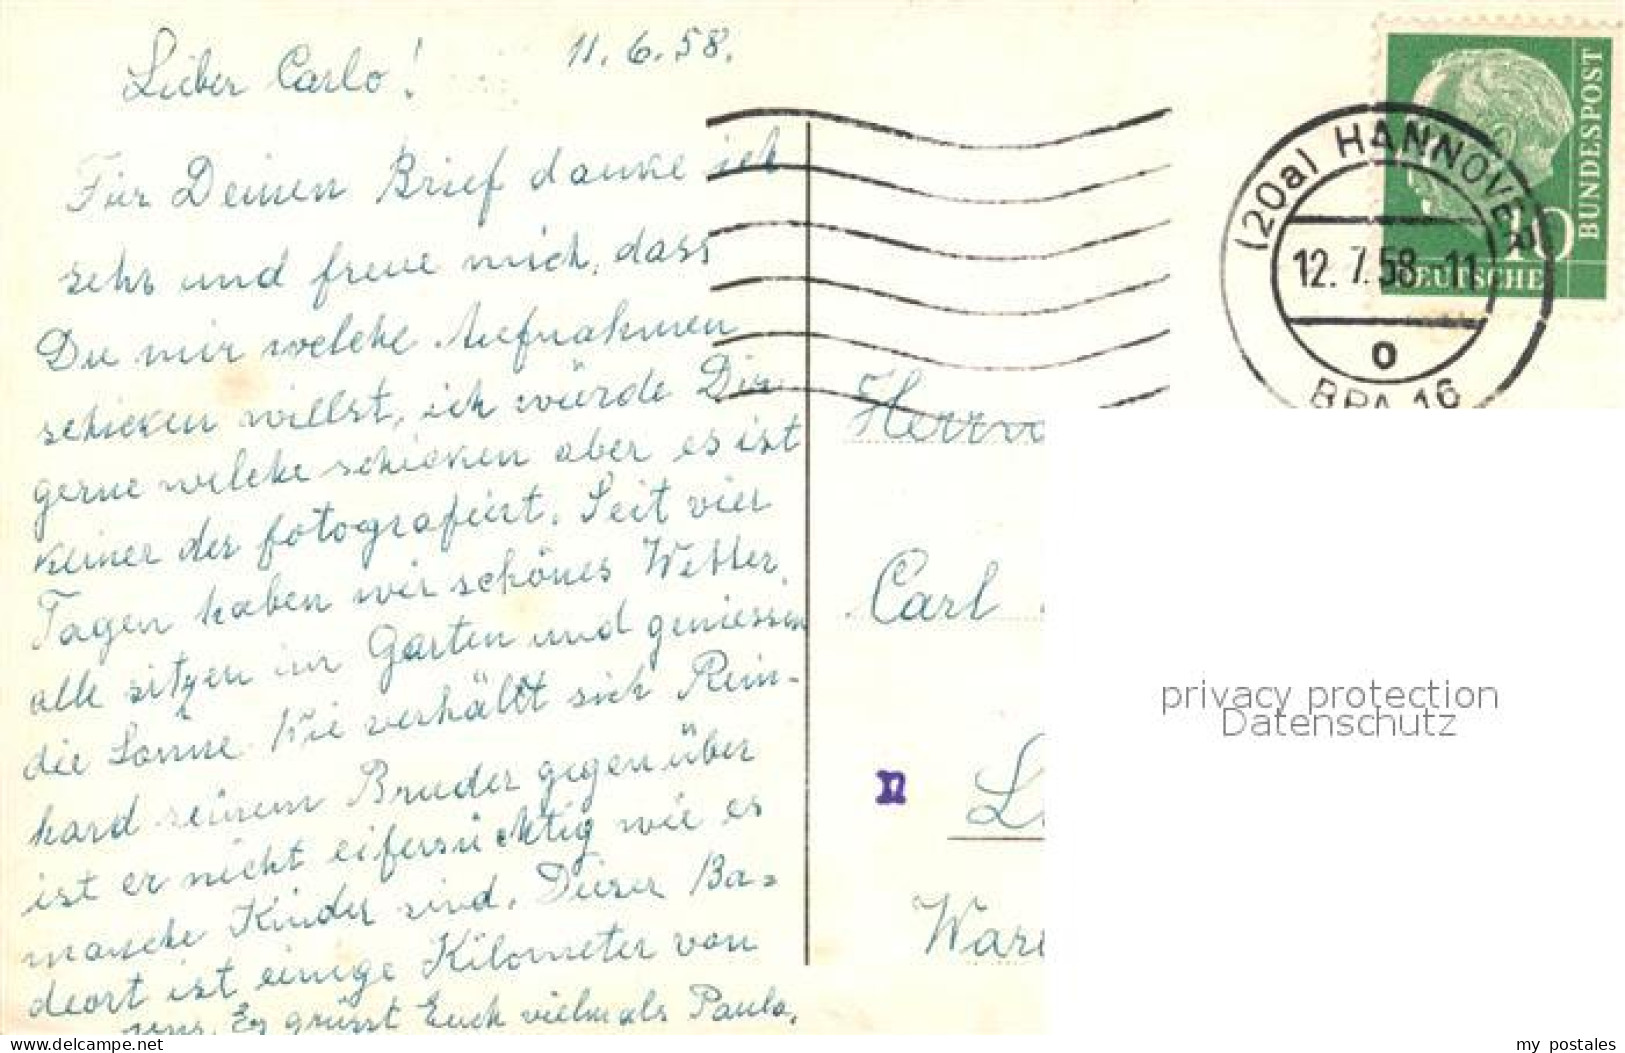 Lieber Carlo!
11. 6. 58.
Für Deinen Brief danke ich
sehr und freue mich, dass
Du mir welche Aufnahmen
schicken willst, ich würde Dir
gerne welche schicken aber es ist
keiner der fotografiert. Seit vier
Tagen haben wir schönes Wetter,
alle sitzen im Garten und geniessen
die Sonne. Wie verhält sich Rein-
hard seinem Bruder gegenüber
ist er nicht eifersüchtig wie es
manche Kinder sind. Dieser Ba-
deort ist einige Kilometer von
uns. Es grüsst Euch vielmals Paula.
BUNDESPOST
10
DEUTSCHE
(20a) HANNOVER
12. 7. 58-11
o
BPA 16
Herrn
Carl
n
L
War
privacy protection
Datenschutz
www.delcampe.net
my_postales